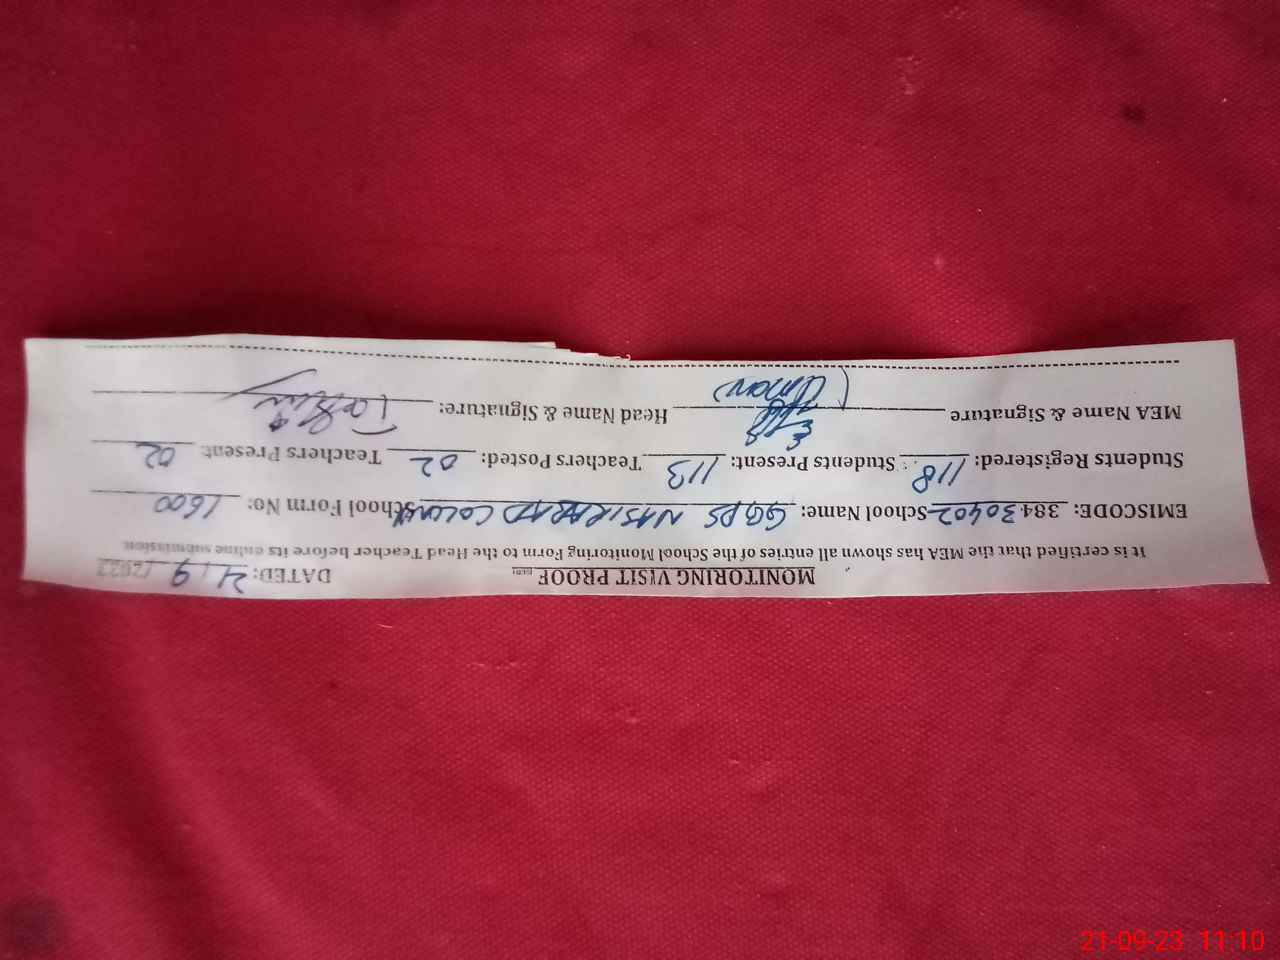 MONITORING VISIT PROOF
DATED: 21/9/2022
It is certified that the MEA has shown all entries of the School Monitoring Form to the Head Teacher before its online submission
EMISCODE: 38430402 School Name: GGPS NASIRABAD COLONY School Form No: 1600
Students Registered: 118 Students Present: 113 Teachers Posted: 02 Teachers Present 02
MEA Name & Signature Head Name & Signature:
21-09-23 11:10